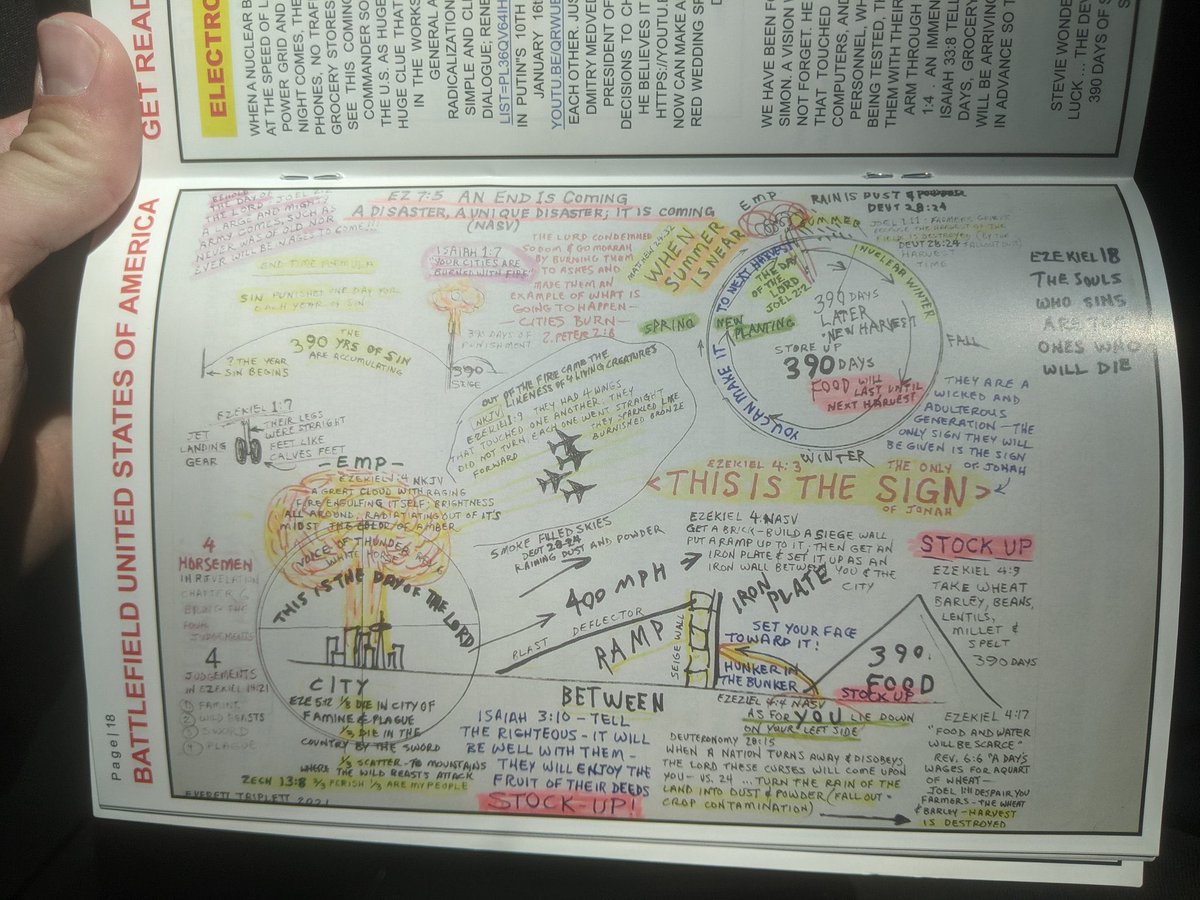 GET READ
ELECTRO
WHEN A NUCLEAR B
AT THE SPEED OF L
POWER GRID AND
NIGHT COMES, THE
PHONES, NO TRAFI
GROCERY STORES
SEE THIS COMING
COMMANDER SO
THE U.S. AS HUGE
HUGE CLUE THAT
IN THE WORKS
GENERAL A
RADICALIZATION
SIMPLE AND CLE
DIALOGUE; RENE
LIST=PL36QV64IH
IN PUTIN'S 10TH
JANUARY 16th
YOUTU.BE/QRWUE
EACH OTHER. JUS
DMITRY MEDVED
PRESIDENT OF
DECISIONS TO CH
HE BELIEVES IT
HTTPS://YOUTU
NOW CAN MAKE A
RED WEDDING SP
WE HAVE BEEN FO
SIMON. A VISION W
NOT FORGET. HE
THAT TOUCHED
COMPUTERS, AND
PERSONNEL, WH
BEING TESTED, TH
ARM THROUGH
1:4 . AN IMMEN
ISAIAH 33:8 TELL
DAYS, GROCERY
WILL BE ARRIVING
IN ADVANCE SO T
STEVIE WONDE
LUCK ... THE DEV
390 DAYS OF S
Page|18
BATTLEFIELD UNITED STATES OF AMERICA
THE DAY OF
THE LORD JOEL 2:2
A LARGE AND MIGHTY
ARMY COMES, SUCH AS
NEVER WAS OF OLD
EVER WILL BE AGES TO COME
EZ 7:5 AN END IS COMING
A DISASTER, A UNIQUE DISASTER; IT IS COMING
(NASV)
END TIME FORMULA
SIN PUNISHED ONE DAY FOR
EACH YEAR OF SIN
THE
390 YRS OF SIN
ARE ACCUMULATING
? THE YEAR
SIN BEGINS
ISAIAH 1:7
YOUR CITIES ARE
BURNED WITH FIRE
390 DAYS OF
PUNISHMENT
390
SEIGE
THE LORD CONDEMNED
SODOM & GOMORRAH
BY BURNING THEM
TO ASHES AND
MADE THEM AN
EXAMPLE OF WHAT IS
GOING TO HAPPEN—
CITIES BURN—
2. PETER 2:6
MATTHEW 24:32
WHEN
SUMMER
IS NEAR
EMP
SUMMER
RAIN IS DUST &
DEUT 28:24
DEUT 28:24
HARVEST
TIME
NUCLEAR WINTER
TO NEXT HARVEST
THE DAY
OF THE
LORD
JOEL 2:2
390 DAYS
LATER
NEW HARVEST
SPRING
NEW
PLANTING
STORE UP
390 DAYS
FOOD WILL
LAST UNTIL
NEXT HARVEST
YOU CAN MAKE IT
FALL
WINTER
EZEKIEL 18
THE SOULS
WHO SINS
ARE THE
ONES WHO
WILL DIE
THEY ARE A
WICKED AND
ADULTEROUS
GENERATION—THE
ONLY SIGN THEY WILL
BE GIVEN IS THE SIGN
OF JONAH
EZEKIEL 1:7
THEIR LEGS
WERE STRAIGHT
FEET LIKE
CALVES FEET
JET
LANDING
GEAR
OUT OF THE FIRE CAME THE
LIKENESS OF 4 LIVING CREATURES
NKJV
EZEKIEL 1:9 THEY HAD 4 WINGS
THAT TOUCHED ONE ANOTHER. THEY
DID NOT TURN EACH ONE WENT STRAIGHT
FORWARD
THEY SPARKLED LIKE
BURNISHED BRONZE
EZEKIEL 4:3
THE ONLY
<THIS IS THE SIGN>
OF JONAH
-EMP-
EZEKIEL 1:4 NKJV
A GREAT CLOUD WITH RAGING
FIRE ENGULFING ITSELF; BRIGHTNESS
ALL AROUND, RADIATIATING OUT OF IT'S
MIDST THE COLOR OF AMBER
VOICE OF THUNDER
WHITE HORSE
THIS IS THE DAY OF THE LORD
CITY
4
HORSEMEN
IN REVELATION
CHAPTER 6
BRING THE
FOUR
JUDGEMENTS
4
JUDGEMENTS
IN EZEKIEL 14:21
1 FAMINE
2 WILD BEASTS
3 SWORD
4 PLAGUE
SMOKE FILLED SKIES
DEUT 28:24
RAINING DUST AND POWDER
400 MPH
BLAST DEFLECTOR
RAMP
SEIGE WALL
IRON PLATE
EZEKIEL 4: NASV
GET A BRICK—BUILD A SIEGE WALL
PUT A RAMP UP TO IT; THEN GET AN
IRON PLATE & SET IT UP AS AN
IRON WALL BETWEEN YOU & THE
CITY
SET YOUR FACE
TOWARD IT!
HUNKER IN
THE BUNKER
STOCK UP
EZEKIEL 4:9
TAKE WHEAT
BARLEY, BEANS,
LENTILS,
MILLET &
SPELT
390 DAYS
390
FOOD
STOCK UP
EZE 5:12 ⅓ DIE IN CITY OF
FAMINE & PLAGUE
⅓ DIE IN THE
COUNTRY BY THE SWORD
⅓ SCATTER—TO MOUNTAINS
WHERE THE WILD BEASTS ATTACK
ZECH 13:8 ⅔ PERISH ⅓ ARE MY PEOPLE
EVERETT TRIPLETT 2021
BETWEEN
ISAIAH 3:10 – TELL
THE RIGHTEOUS – IT WILL
BE WELL WITH THEM –
THEY WILL ENJOY THE
FRUIT OF THEIR DEEDS
STOCK-UP!
EZEZIEL 4:4 NASV
AS FOR YOU LIE DOWN
ON YOUR LEFT SIDE
DEUTERONOMY 28:15
WHEN A NATION TURNS AWAY & DISOBEYS
THE LORD THESE CURSES WILL COME UPON
YOU– VS. 24 ... TURN THE RAIN OF THE
LAND INTO DUST & POWDER (FALL OUT-
CROP CONTAMINATION)
EZEKIEL 4:17
"FOOD AND WATER
WILL BE SCARCE"
REV. 6:6 "A DAY'S
WAGES FOR A QUART
OF WHEAT—
JOEL 1:11 DESPAIR YOU
FARMORS–THE WHEAT
& BARLEY–HARVEST
IS DESTROYED